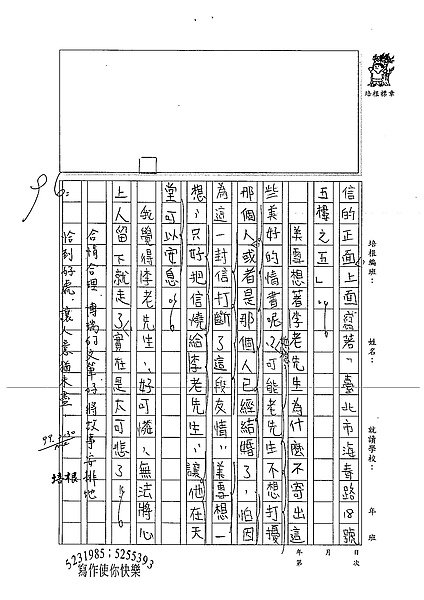 培根標章
培根編班：
姓名：
就讀學校：
年
班
年
月
日
第
次
信的正面上面寫著「臺北市海青路18號
五樓之五」。
美惠想著李老先生為什麼不寄出這
些美好的情書呢？可能老先生不想打擾
那個人或者是那個人已經結婚了，怕因
為這一封信打斷了這段友情，美惠想一
想，只好把信燒給李老先生，讓他在天
堂可以安息。
我覺得李老先生，好可憐，無法將心
上人留下就走了實在是太可悲了。
合情合理，博瑞的文筆好，將故事安排地
恰到好處，讓人意猶未盡。
97.
培根
96.
5231985；5255393
寫作使你快樂